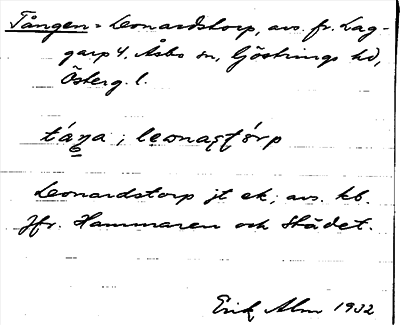 Tången = Leonardstorp, avs. fr. Lag-
garp 4, Åsbo sn, Göstrings hd,
Österg. l.
táŋa ; leonaʂtórp
Leonardstorp jt ek; avs. kb.
Jfr. Hammaren och Städet.
Erik Alm 1932